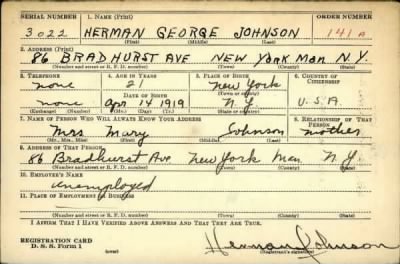 SERIAL NUMBER 1. NAME (Print) ORDER NUMBER
3022 HERMAN GEORGE JOHNSON 141A
(First) (Middle) (Last)
2. ADDRESS (Print)
86 BRADHURST AVE NEW YORK Man N.Y.
(Number and street or R. F. D. number) (Town) (County) (State)
3. TELEPHONE 4. AGE IN YEARS 5. PLACE OF BIRTH 6. COUNTRY OF CITIZENSHIP
none 21 New York
DATE OF BIRTH (Town or county)
none Apr 14 1919 N.Y. U.S.A
(Exchange) (Number) (Mo.) (Day) (Yr.) (State or country)
7. NAME OF PERSON WHO WILL ALWAYS KNOW YOUR ADDRESS 8. RELATIONSHIP OF THAT PERSON
Mrs Mary Johnson mother
(Mr., Mrs., Miss) (First) (Middle) (Last)
9. ADDRESS OF THAT PERSON
86 Bradhurst Ave New York Man N.Y.
(Number and street or R. F. D. number) (Town) (County) (State)
10. EMPLOYER'S NAME
unemployed
11. PLACE OF EMPLOYMENT OR BUSINESS
(Number and street or R. F. D. number) (Town) (County) (State)
I AFFIRM THAT I HAVE VERIFIED ABOVE ANSWERS AND THAT THEY ARE TRUE.
REGISTRATION CARD
D. S. S. Form 1
Herman Johnson
(Registrant's signature)